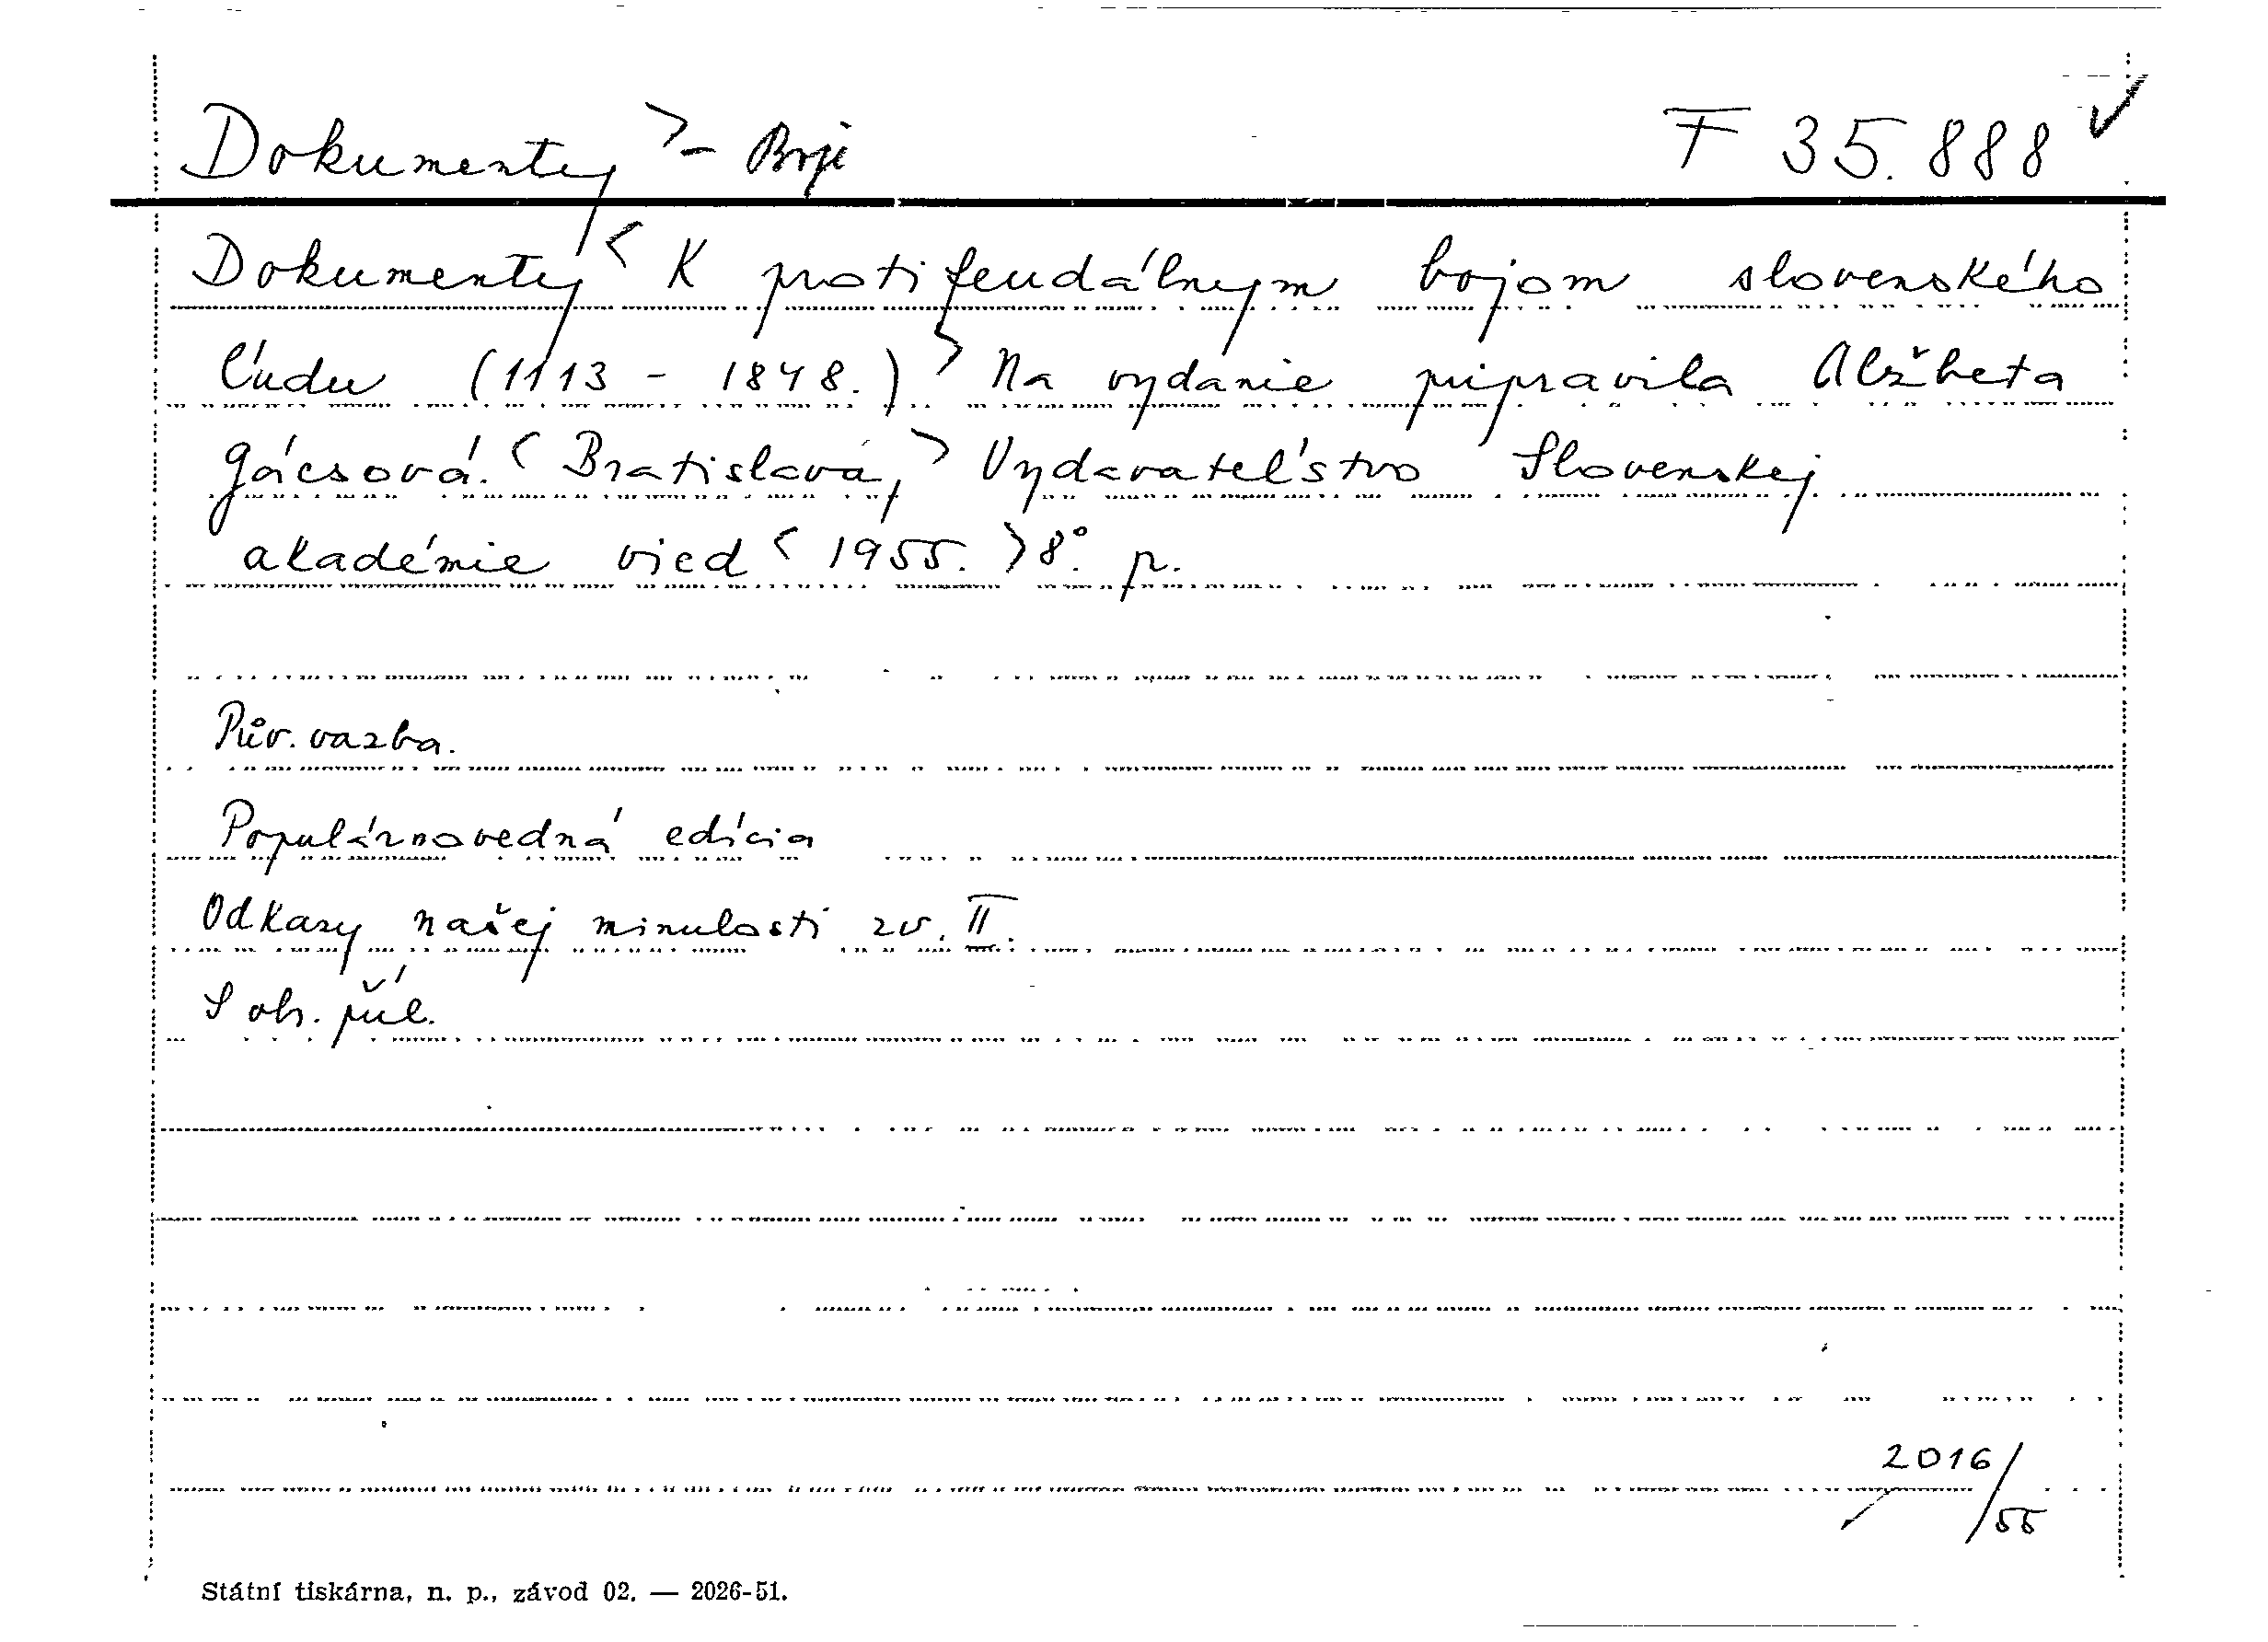 Dokumenty > - Boje F 35.888 ✓
Dokumenty < K protifeudálnym bojom slovenského
ľudu (1113 - 1848.) > Na vydanie pripravila Alžbeta
Gácsová. < Bratislava, > Vydavateľstvo Slovenskej
akadémie vied < 1955. > 8°. p.
Pův. vazba.
Populárnovedná edícia
Odkazy našej minulosti zv. II.
S obr. příl.
2016/55
Státní tiskárna, n. p., závod 02. — 2026-51.